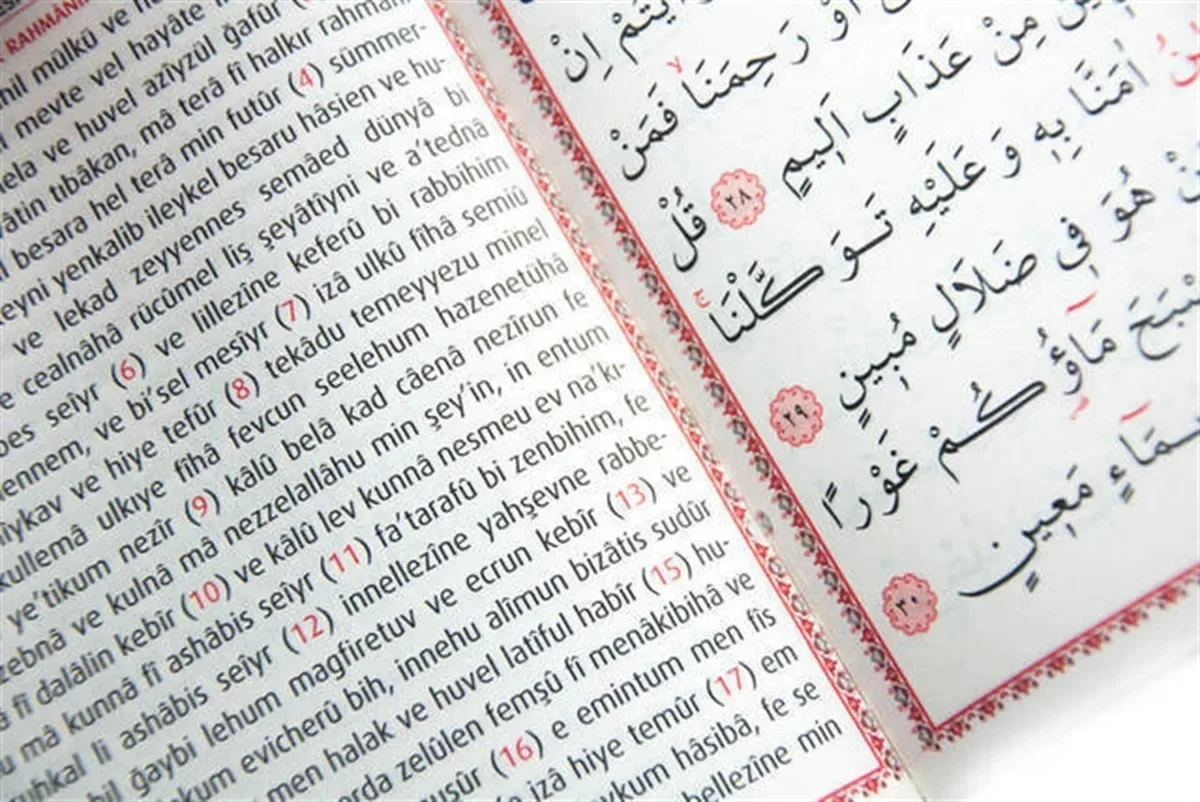 mülkü ve
mevte vel hayâte
ve huvel azîyzül ğafûr
tıbâkan, mâ terâ fî halkır rahmâni
besara hel terâ min futûr (4) sümmer-
yenkalib ileykel besaru hâsien ve hu-
ve lekad zeyyennes semâed dünyâ bi
cealnâhâ rücûmel liş şeyâtîyni ve a'tednâ
seîyr (6) ve lillezîne keferû bi rabbihim
ve bi'sel mesîyr (7) izâ ulkû fîhâ semiû
ve hiye tefûr (8) tekâdu temeyyezu minel
kullemâ ulkıye fîhâ fevcun seelehum hazenetühâ
ye'tikum nezîr (9) kâlû belâ kad câenâ nezîrun fe
ve kulnâ mâ nezzelallâhu min şey'in, in entum
fî dalâlin kebîr (10) ve kâlû lev kunnâ nesmeu ev na'kı-
mâ kunnâ fî ashâbis seîyr (11) fa'tarafû bi zenbihim, fe
li ashâbis seîyr (12) innellezîne yahşevne rabbe-
ğaybi lehum magfiretuv ve ecrun kebîr (13) ve
evicherû bih, innehu alîmun bizâtis sudûr
men halak ve huvel latîful habîr (15) hu-
zelûlen femşû fî menâkibihâ ve
(16) e emintum men fîs
izâ hiye temûr (17) em
hâsibâ, fe se
min
اِنْ
اَوْ رَحِمَنَا فَمَنْ
مِنْ عَذَابٍ اَلِيمٍ ٢٨ قُلْ
اٰمَنَّا بِهِ وَ عَلَيْهِ تَوَكَّلْنَا
هُوَ فِى ضَلَالٍ مُبِينٍ ٢٩
مَاؤُكُمْ غَوْرًا
مَعِينٍ ٣٠